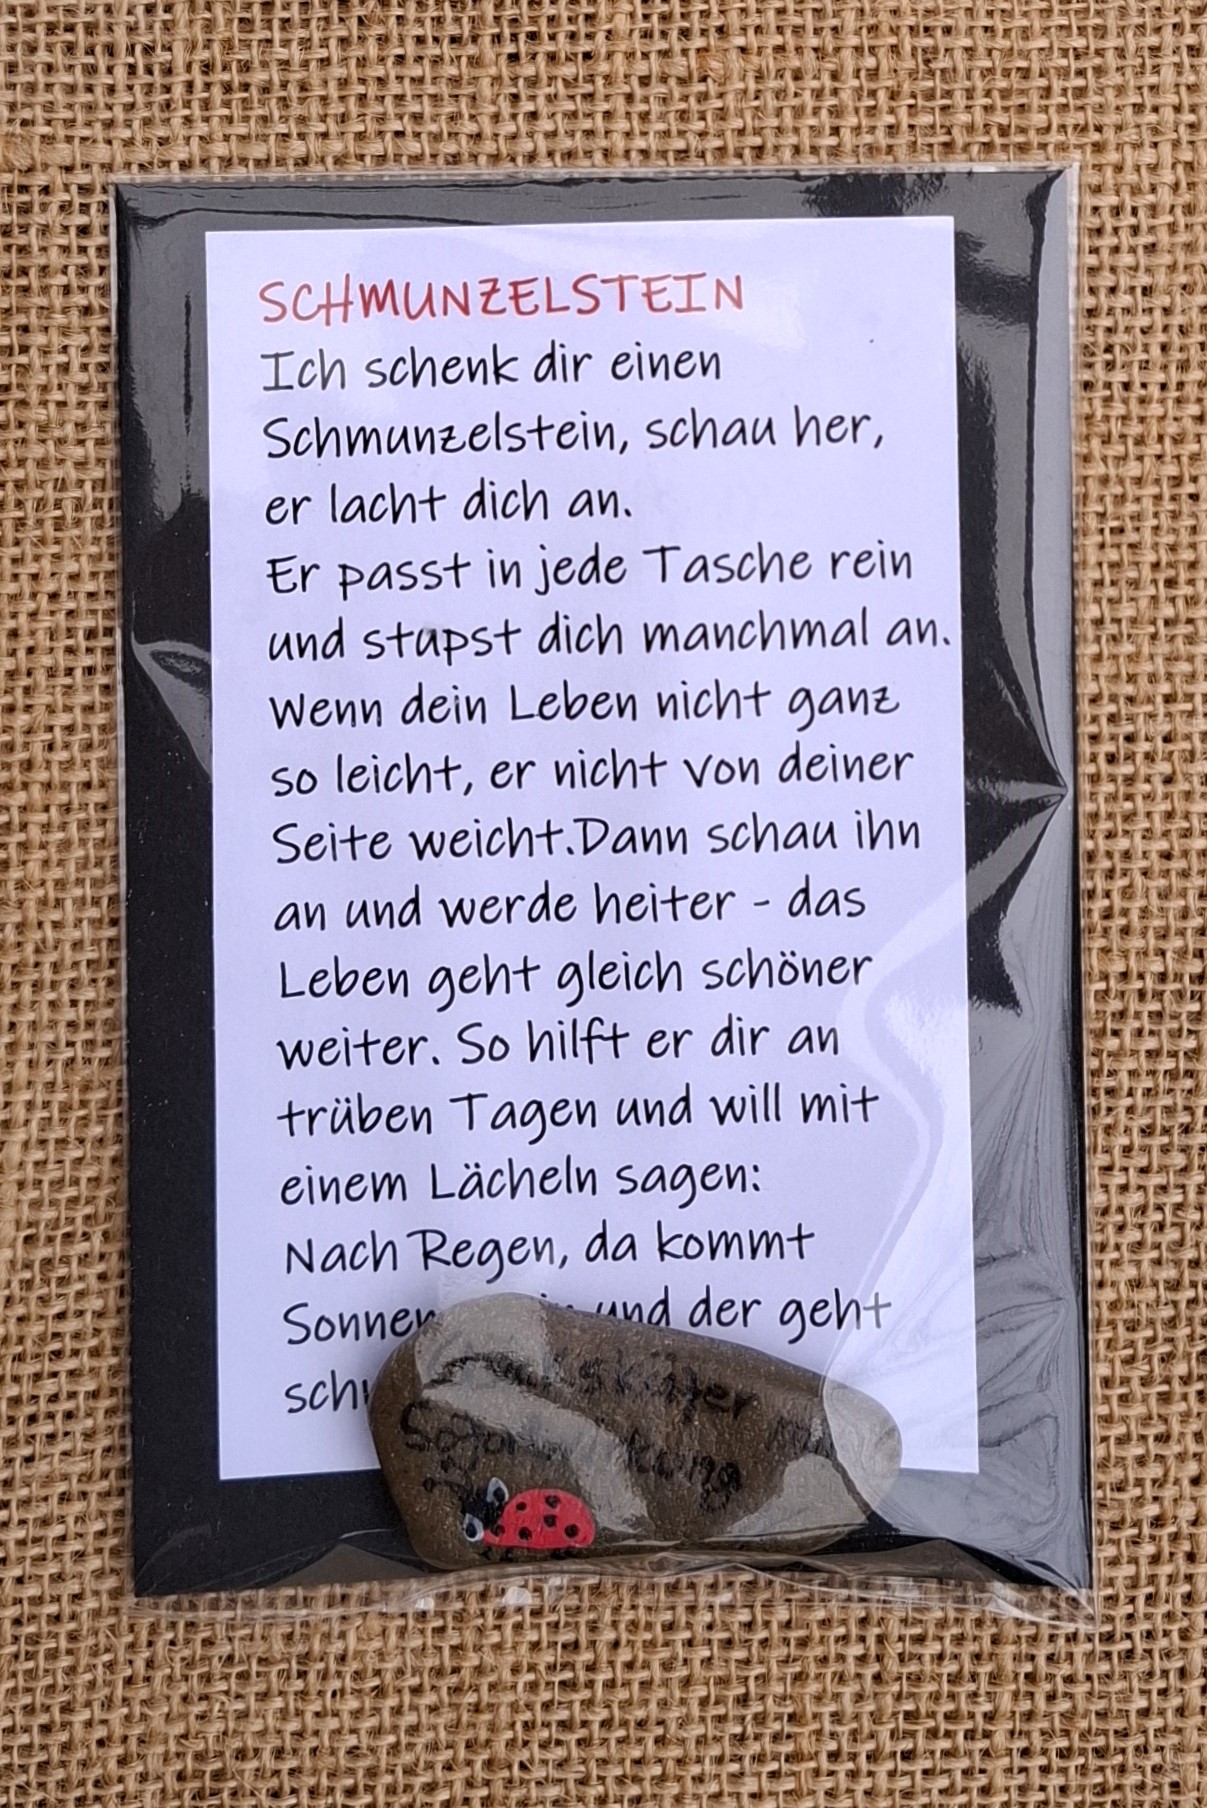 SCHMUNZELSTEIN
Ich schenk dir einen
Schmunzelstein, schau her,
er lacht dich an.
Er passt in jede Tasche rein
und stupst dich manchmal an.
Wenn dein Leben nicht ganz
so leicht, er nicht von deiner
Seite weicht.Dann schau ihn
an und werde heiter - das
Leben geht gleich schöner
weiter. So hilft er dir an
trüben Tagen und will mit
einem Lächeln sagen:
Nach Regen, da kommt
und der geht